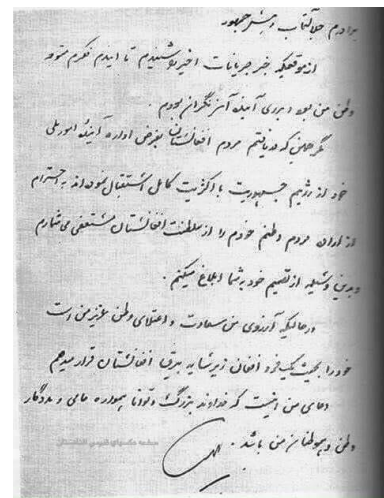 برادرم جلالتمآب رئیس جمهور
از موقعیکه خبر جریانات اخیر را شنیدم تا ایندم فکرم متوجه
وطن من بوده و برای آینده آن نگران بودم .
مگر همینکه دریافتم مردم افغانستان بغرض اداره آینده امور ملی
خود از رژیم جمهوریت با اکثریت کامل استقبال نموده اند به احترام
از اراده مردم وطنم خودم را از سلطنت افغانستان مستعفی می شمارم
و بدین وسیله از تصمیم خود به شما ابلاغ میکنم .
در حالیکه آرزوی من سعادت و اعتلای وطن عزیز من است
خود را بحیث یک فرد افغان زیر سایه بیرق افغانستان قرار میدهم
دعای من اینست که خداوند بزرگ و توانا همواره حامی و مددگار
وطن و هموطنان من باشد .
صفحه عکسهای قدیمی افغانستان